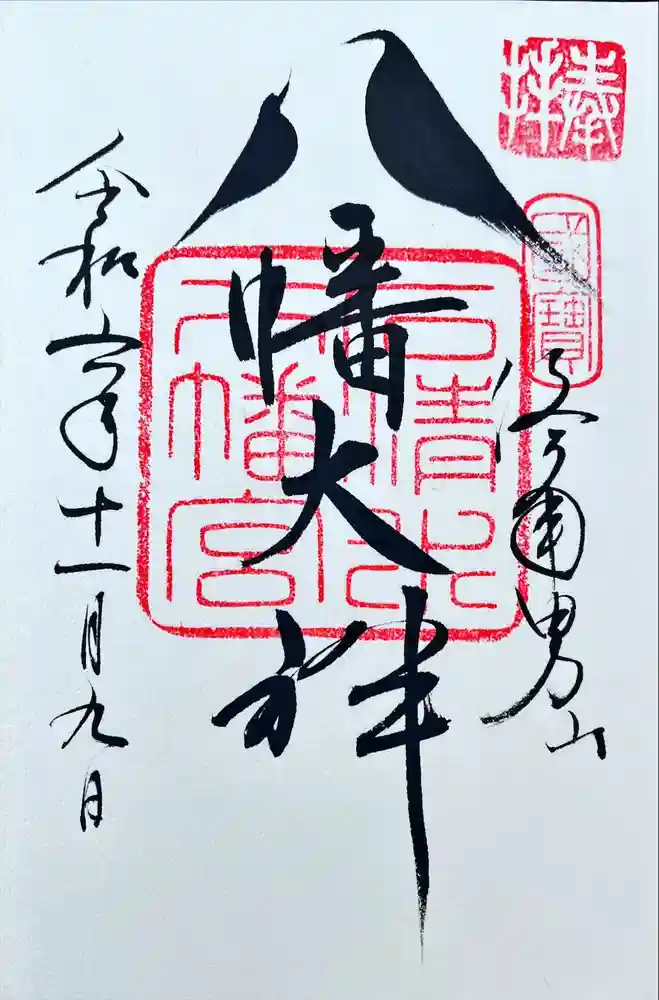 奉拝
國寶
洛南男山
八幡大神
石清水八幡宮
令和六年十一月九日